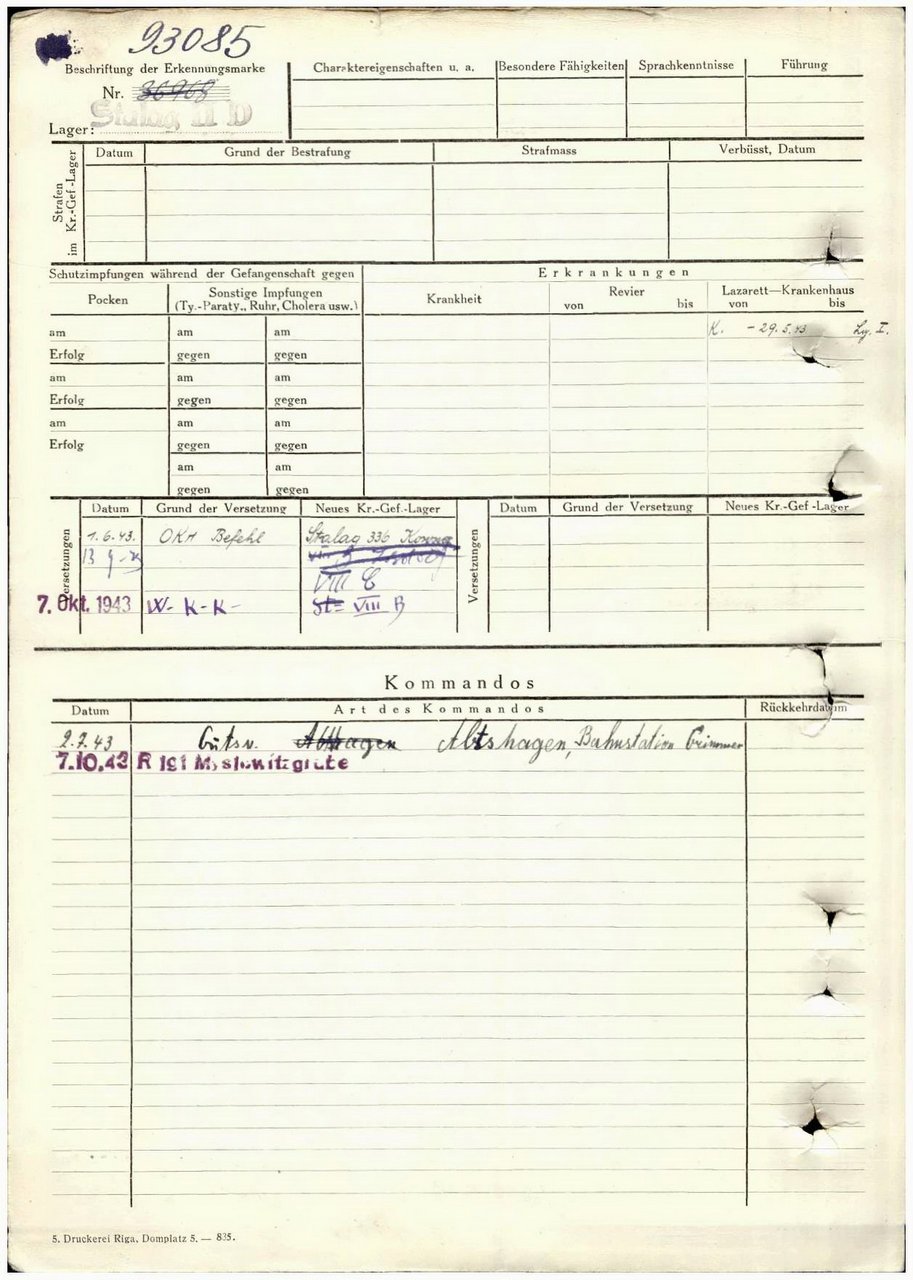 93085
Beschriftung der Erkennungsmarke
Nr. 36968
Stalag II D
Lager:
Charaktereigenschaften u. a.
Besondere Fähigkeiten
Sprachkenntnisse
Führung
Strafen
im Kr.-Gef-Lager
Datum
Grund der Bestrafung
Strafmass
Verbüsst, Datum
Schutzimpfungen während der Gefangenschaft gegen
Erkrankungen
Pocken
Sonstige Impfungen
(Ty.-Paraty., Ruhr, Cholera usw.)
Krankheit
Revier
von bis
Lazarett—Krankenhaus
von bis
K. - 29.5.43
am am am
Erfolg gegen gegen
am am am
Erfolg gegen gegen
am am am
Erfolg gegen gegen
am am
gegen gegen
Versetzungen
Datum
Grund der Versetzung
Neues Kr.-Gef.-Lager
Versetzungen
Datum
Grund der Versetzung
Neues Kr.-Gef-Lager
1.6.43. OKH Befehl Stalag 336
VIII C
7. Okt. 1943 VIII B
Kommandos
Datum
Art des Kommandos
Rückkehrdatum
2.7.43 Gutsv. Abtshagen, Bahnstation Grimmen
7.10.43 R 191 Myslowitzgrube
5. Druckerei Riga, Domplatz 5. — 835.